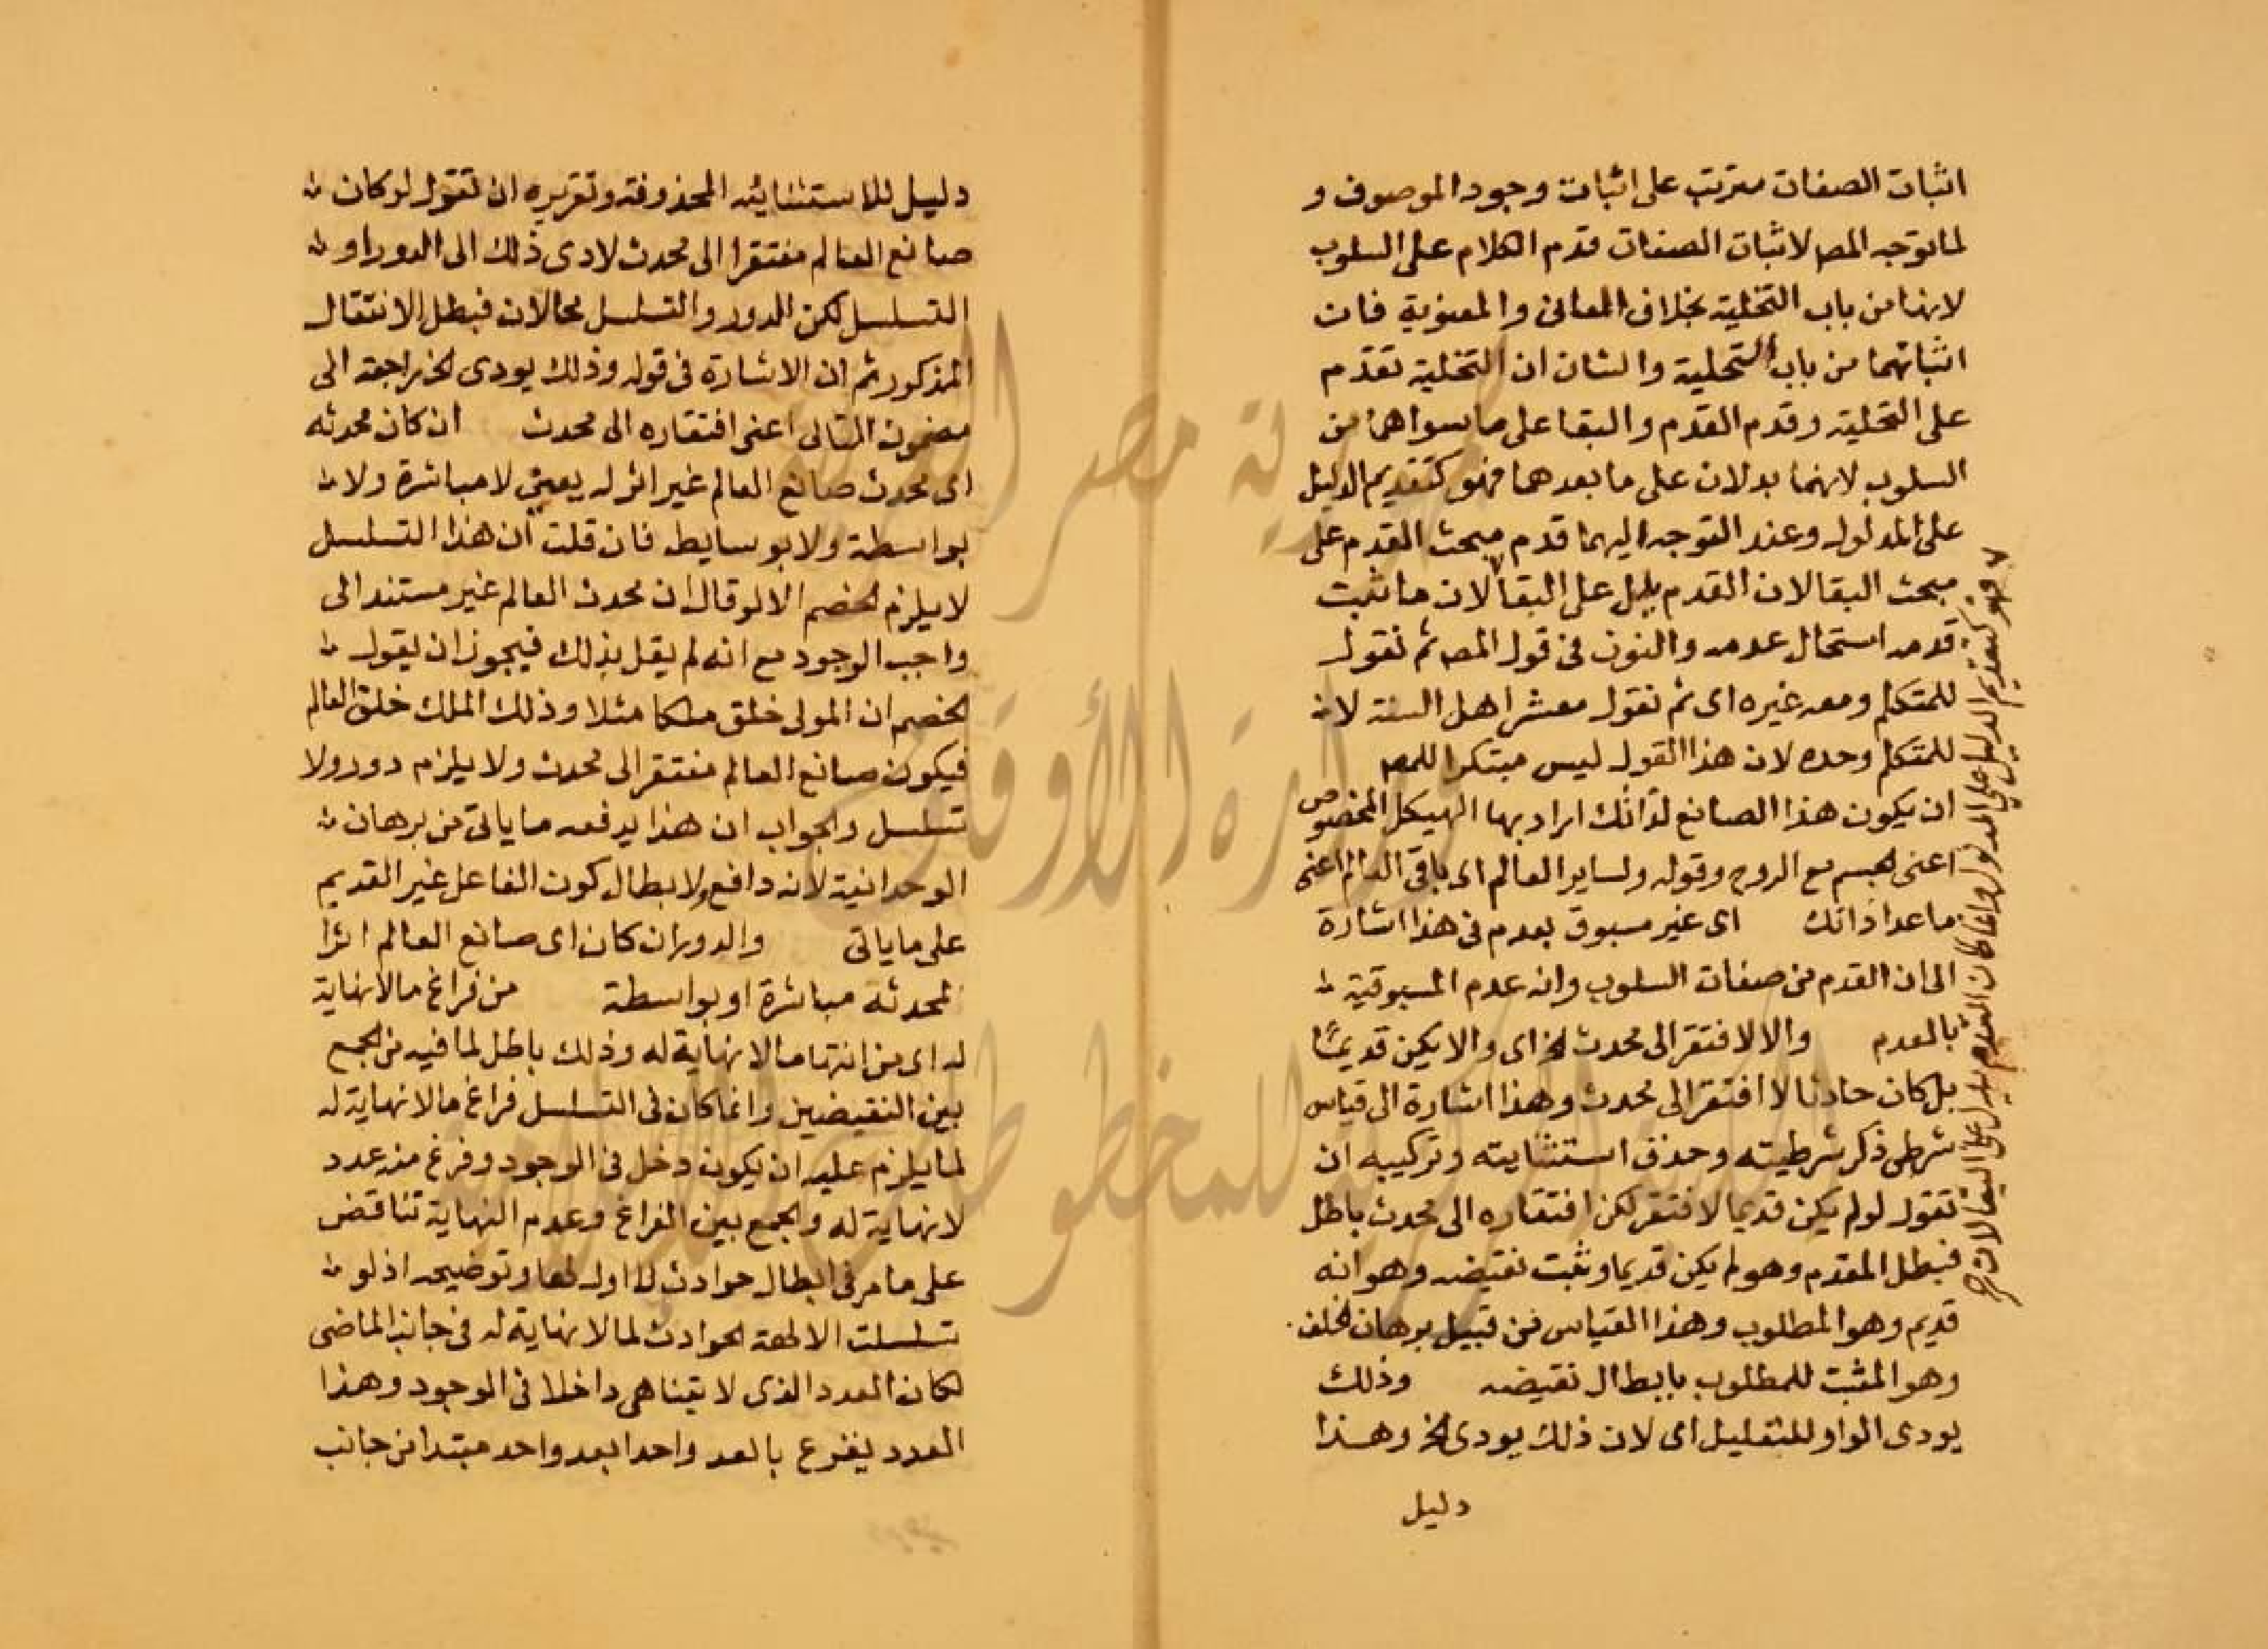 اثبات الصفات مترتب على اثبات وجود الموصوف و
لما توجه المصـ لاثبات الصفات قدم الكلام على السلوب
لانها من باب التخلية بخلاف المعانى والمعنوية فان
اثباتهما من باب التحلية والشان ان التخلية تقدم
على التحلية وقدم القدم والبقا على ما سواهما من
السلوب لانهما يدلان على ما بعدهما فهو كتقديم الدليل
على المدلول وعند التوجه اليهما قدم مبحث القدم على
مبحث البقا لان القدم يدل على البقا لان ما ثبت
قدمه استحال عدمه والنون فى قول المصـ ثم نقول
للمتكلم ومعه غيره اى ثم نقول معشر اهل السنة لانه
للمتكلم وحده لان هذا القول ليس مبتكرا للمصـ
ان يكون هذا الصانع لذاتك اراد بها الهيكل المخصوص
اعنى الجسم مع الروح وقوله ولساير العالم اى باقى العالم اعنى
ما عدا ذاتك اى غير مسبوق بعدم فى هذا اشارة
الى ان القدم من صفات السلوب وانه عدم المسبوقية
بالعدم والا لافتقر الى محدث الخ اى والا يكن قديمًا
بل كان حادثا لا افتقر الى محدث وهذا اشارة الى قياس
شرطى ذكر شرطيته وحذف استثنايته وتركيبه ان
تقول لو لم يكن قديما لافتقر لكن افتقاره الى محدث باطل
فبطل المقدم وهو لم يكن قديما وثبت نقيضه وهو انه
قديم وهو المطلوب وهذا القياس من قبيل برهان الخلف
وهو المثبت للمطلوب بابطال نقيضه وذلك
يودى الواو للتعليل اى لان ذلك يودى الخ وهذا
دليل
فهو كتقديم الدليل على المدلول وانما كان القدم يدل على البقا لان
دليل للاستثنائيه المحذوفة وتقريره ان تقول لو كان
صانع العالم مفتقرا الى محدث لادى ذلك الى الدور او
التسلسل لكن الدور والتسلسل محالان فبطل الانتقال
المذكور ثم ان الاشارة فى قوله وذلك يودى الخ راجعة الى
مضمون التالى اعنى افتقاره الى محدث ان كان محدثه
اى محدث صانع العالم غير اثر له يعنى لا مباشرة ولا
بواسطة ولا بوسايط فان قلت ان هذا التسلسل
لا يلزم الخصم الا لو قال ان محدث العالم غير مستند الى
واجب الوجود مع انه لم يقل بذلك فيجوز ان يقول
الخصم ان المولى خلق ملكا مثلا وذلك الملك خلق العالم
فيكون صانع العالم مفتقر الى محدث ولا يلزم دور ولا
تسلسل والجواب ان هذا يدفعه ما ياتى من برهان
الوحدانية لانه دافع ولابطال كون الفاعل غير القديم
على ما ياتى والدور ان كان اى صانع العالم اثرا
لمحدثه مباشرة او بواسطة من فراغ ما لا نهاية
له اى من انتها ما لا نهاية له وذلك باطل لما فيه من الجمع
بين النقيضين وانما كان فى التسلسل فراغ ما لا نهاية له
لما يلزم عليه ان يكون دخل فى الوجود وفرغ منه عدد
لا نهاية له والجمع بين الفراغ وعدم النهاية تناقض
على ما مر فى ابطال حوادث لا اول لها وتوضيحه اذ لو
تسلسلت الالهة الحوادث لما لا نهاية له فى جانب الماضى
لكان العدد الذى لا يتناهى داخلا فى الوجود وهذا
العدد يفرغ بالعد واحدا بعد واحد مبتدا من جانب
جمهورية مصر العربية
وزارة الأوقاف
المكتبة المركزية للمخطوطات الإسلامية